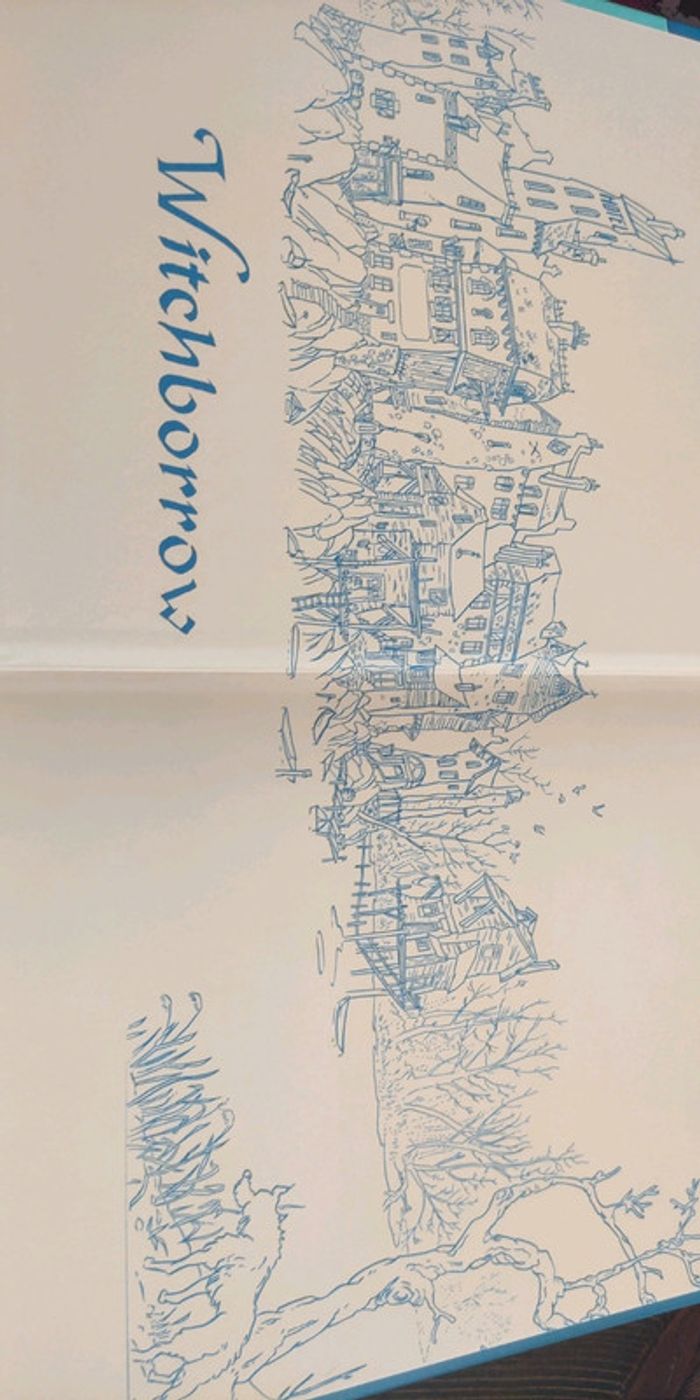 Witchborrow
HOTEL